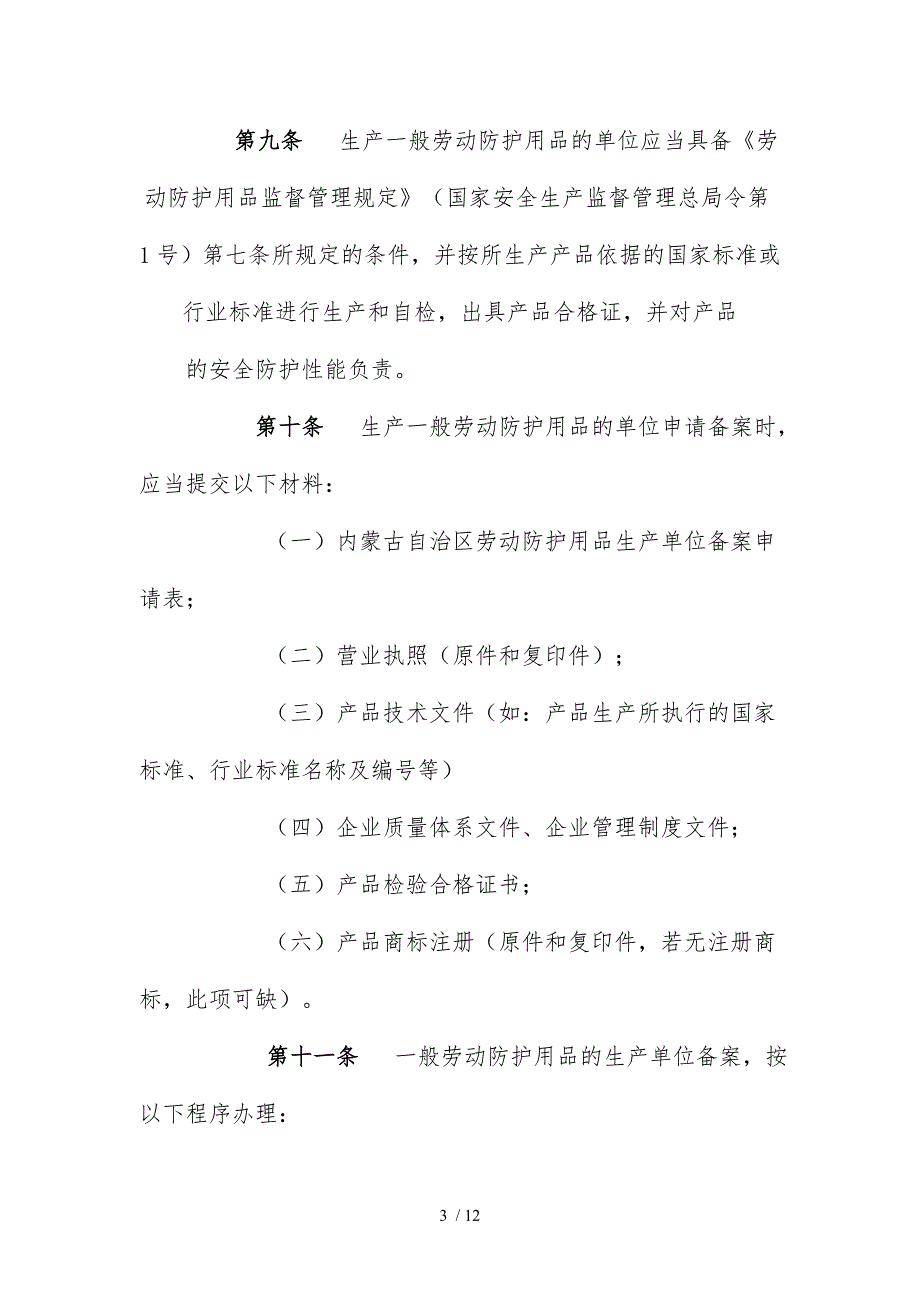 第九条 生产一般劳动防护用品的单位应当具备《劳
动防护用品监督管理规定》（国家安全生产监督管理总局令第
1 号）第七条所规定的条件，并按所生产产品依据的国家标准或
行业标准进行生产和自检，出具产品合格证，并对产品
的安全防护性能负责。
第十条 生产一般劳动防护用品的单位申请备案时，
应当提交以下材料：
（一）内蒙古自治区劳动防护用品生产单位备案申
请表；
（二）营业执照（原件和复印件）；
（三）产品技术文件（如：产品生产所执行的国家
标准、行业标准名称及编号等）
（四）企业质量体系文件、企业管理制度文件；
（五）产品检验合格证书；
（六）产品商标注册（原件和复印件，若无注册商
标，此项可缺）。
第十一条 一般劳动防护用品的生产单位备案，按
以下程序办理：
3 / 12